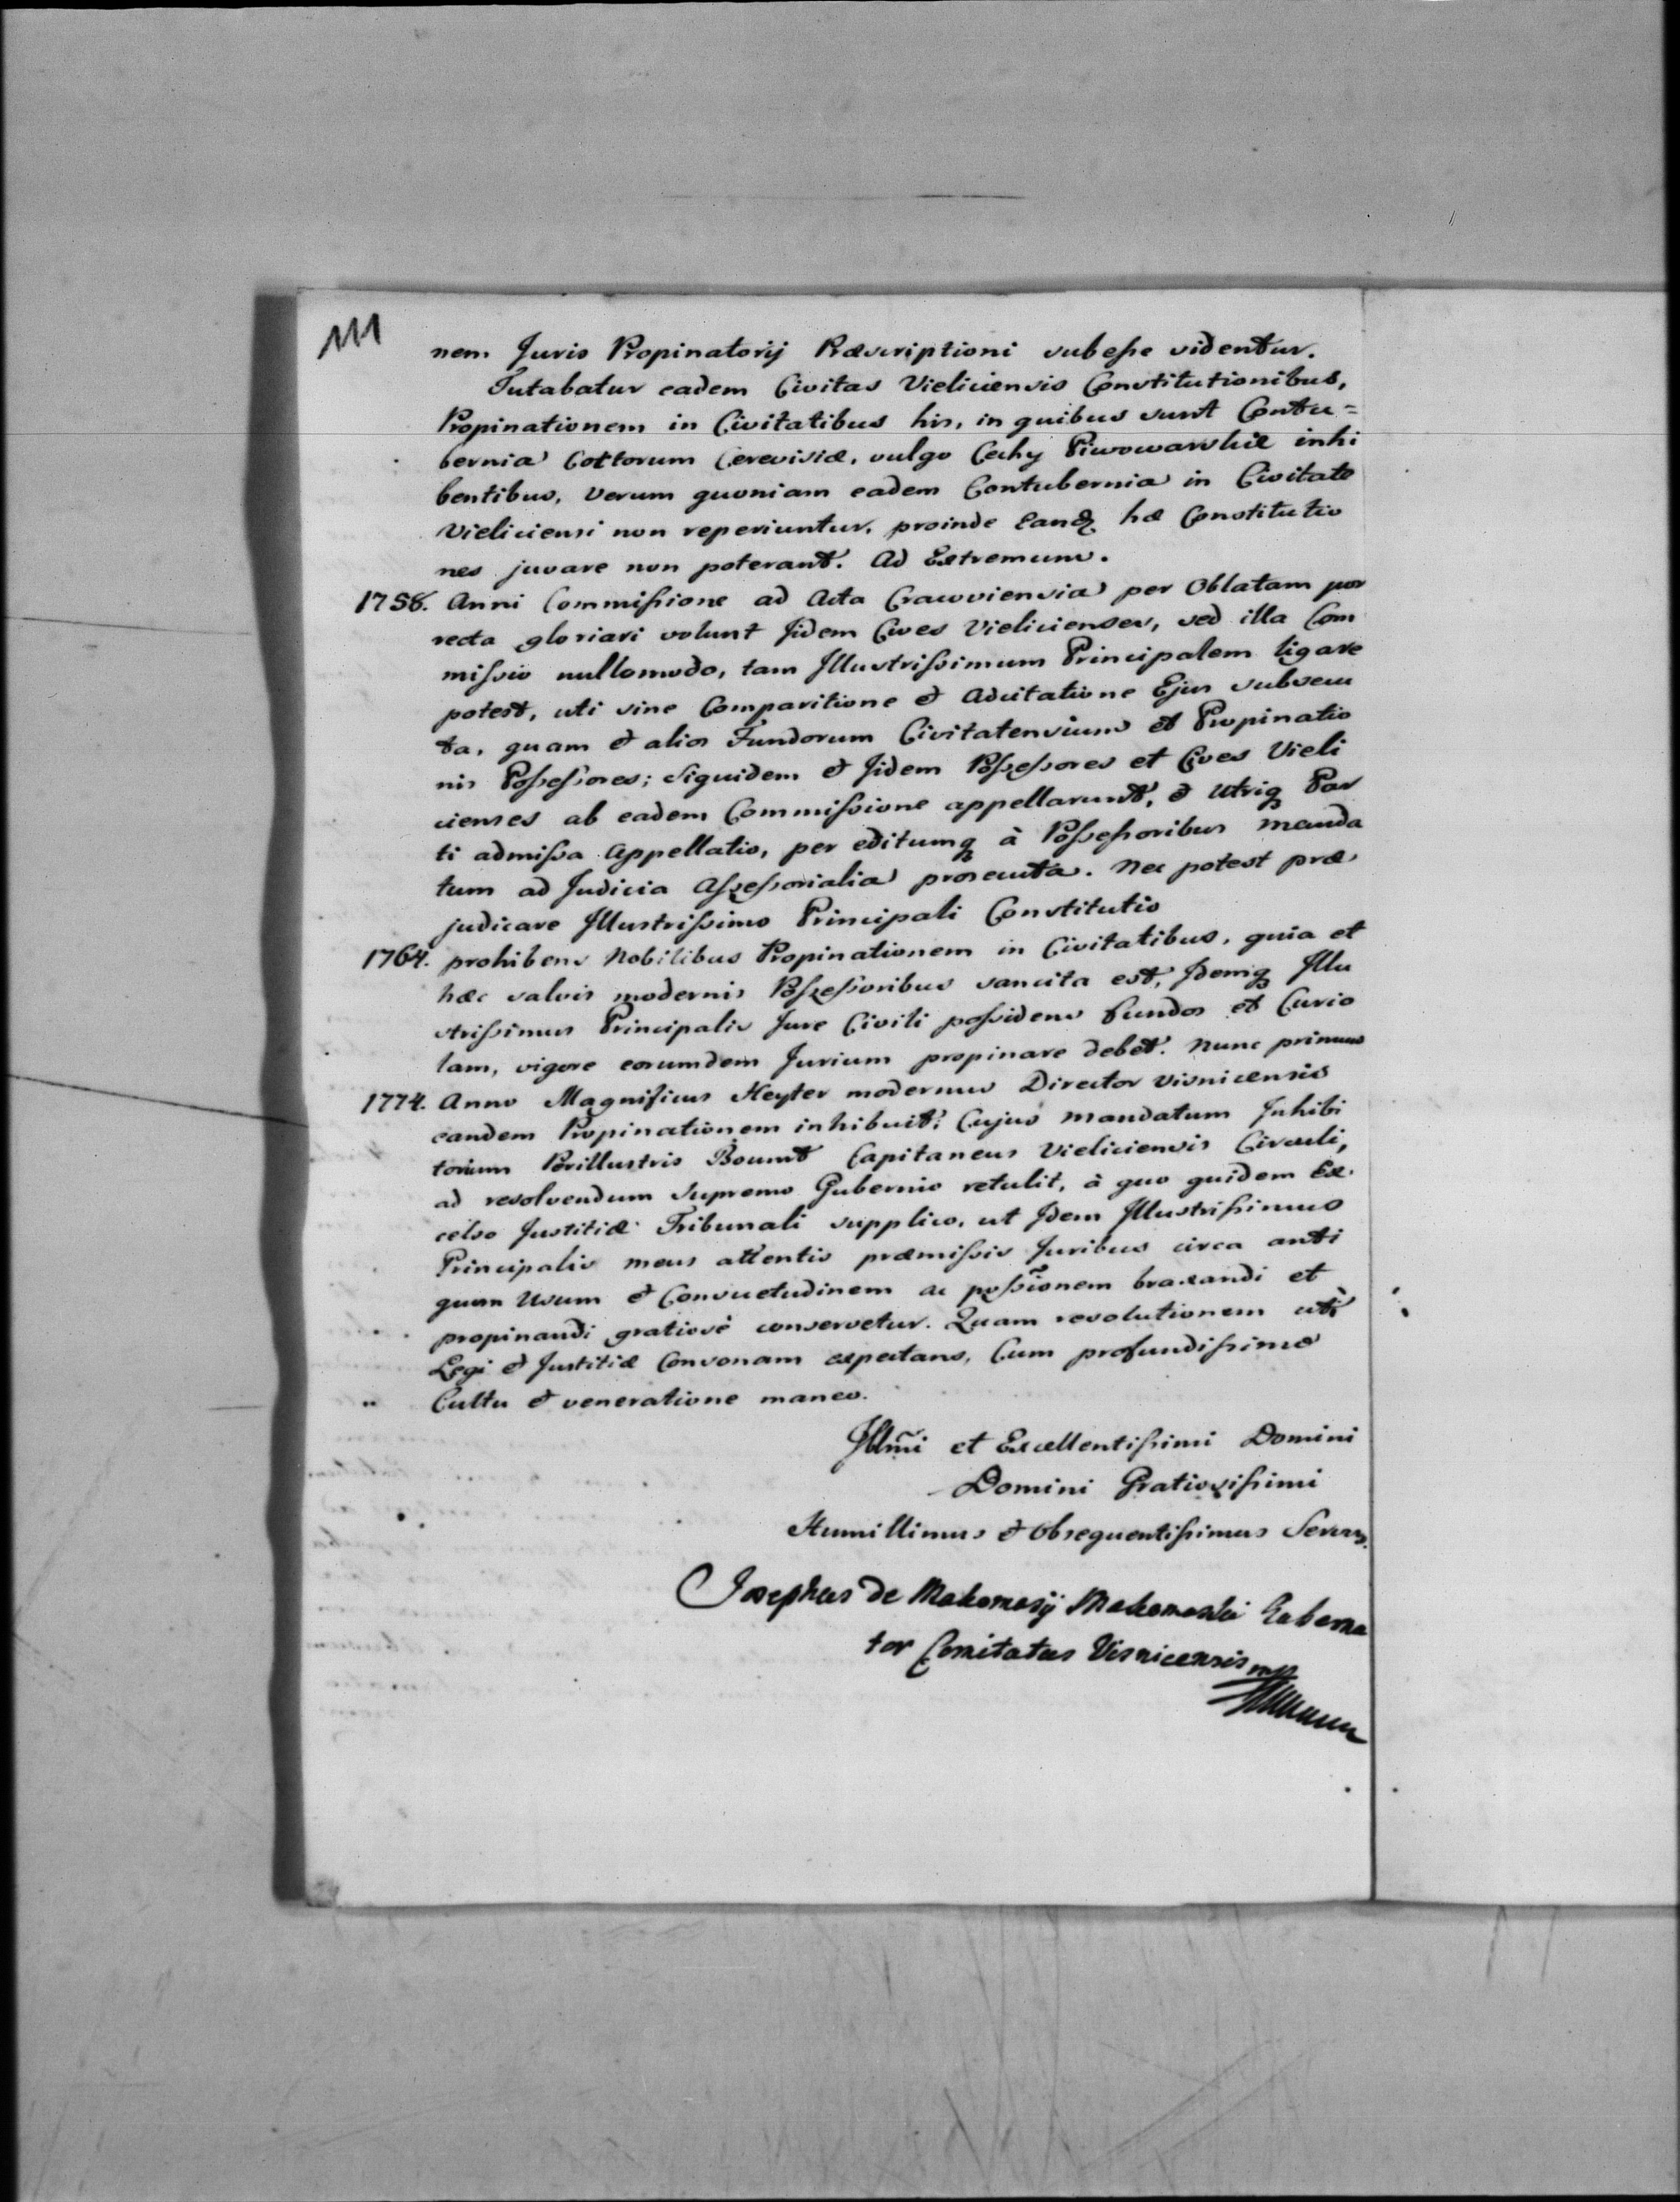 111
nem Juris Propinatorij Præscriptioni subesse videntur.
Tutabatur eadem Civitas Vieliciensis Constitutionibus,
Propinationem in Civitatibus his, in quibus sunt Contu=
bernia Coctorum Cerevisiæ, vulgo Cechy Piwowarskie inhi
bentibus, verum quoniam eadem Contubernia in Civitate
Vieliciensi non reperiuntur, proinde Eandq hæ Constitutio
nes juvare non poterant. Ad Extremum.
1758. Anni Commissione ad Acta Cracoviensia per Oblatam por
recta gloriari volunt Jidem Cives Vielicienses, sed illa Com
missio nullomodo, tam Illustrissimum Principalem ligare
potest, uti sine Comparitione et Adcitatione Ejus subsecu
ta, quam et alios Fundorum Civitatensium et Propinatio
nis Possessores; Siquidem et Jidem Possessores et Cives Vieli
cienses ab eadem Commissione appellarunt, et Utriq Par
ti admissa Appellatio, per editumq à Possessoribus Manda
tum ad Judicia Assessorialia prosecuta. Nec potest præ
judicare Illustrissimo Principali Constitutio
1764. prohibens Nobilibus Propinationem in Civitatibus, quia et
hæc salvis modernis Possessoribus sancita est, Idemq Illu
strissimus Principalis Jure Civili possidens Fundos et Curio
lam, vigore eorumdem Jurium propinare debet. Nunc primum
1774. Anno Magnificus Heyter modernus Director Visnicensis
eandem Propinationem inhibuit; Cujus Mandatum Inhibi
torium Perillustris Boumt Capitaneus Vieliciensis Circuli,
ad resolvendum Supremo Gubernio retulit, à quo quidem Ex
celso Justitiæ Tribunali supplico, ut Idem Illustrissimus
Principalis meus attentis præmissis Juribus circa anti
quum Usum et Consuetudinem ac possionem braxandi et
propinandi gratiosè conservetur. Quam resolutionem uti
Legi et Justitiæ Consonam expectans, Cum profundissimo
Cultu et veneratione maneo.
Illmi et Excellentissimi Domini
Domini Gratiosissimi
Humillimus et Obsequentissimus Servus.
Josephus de Makomasij Makomaski Guberna
tor Comitatus Visnicensis mp